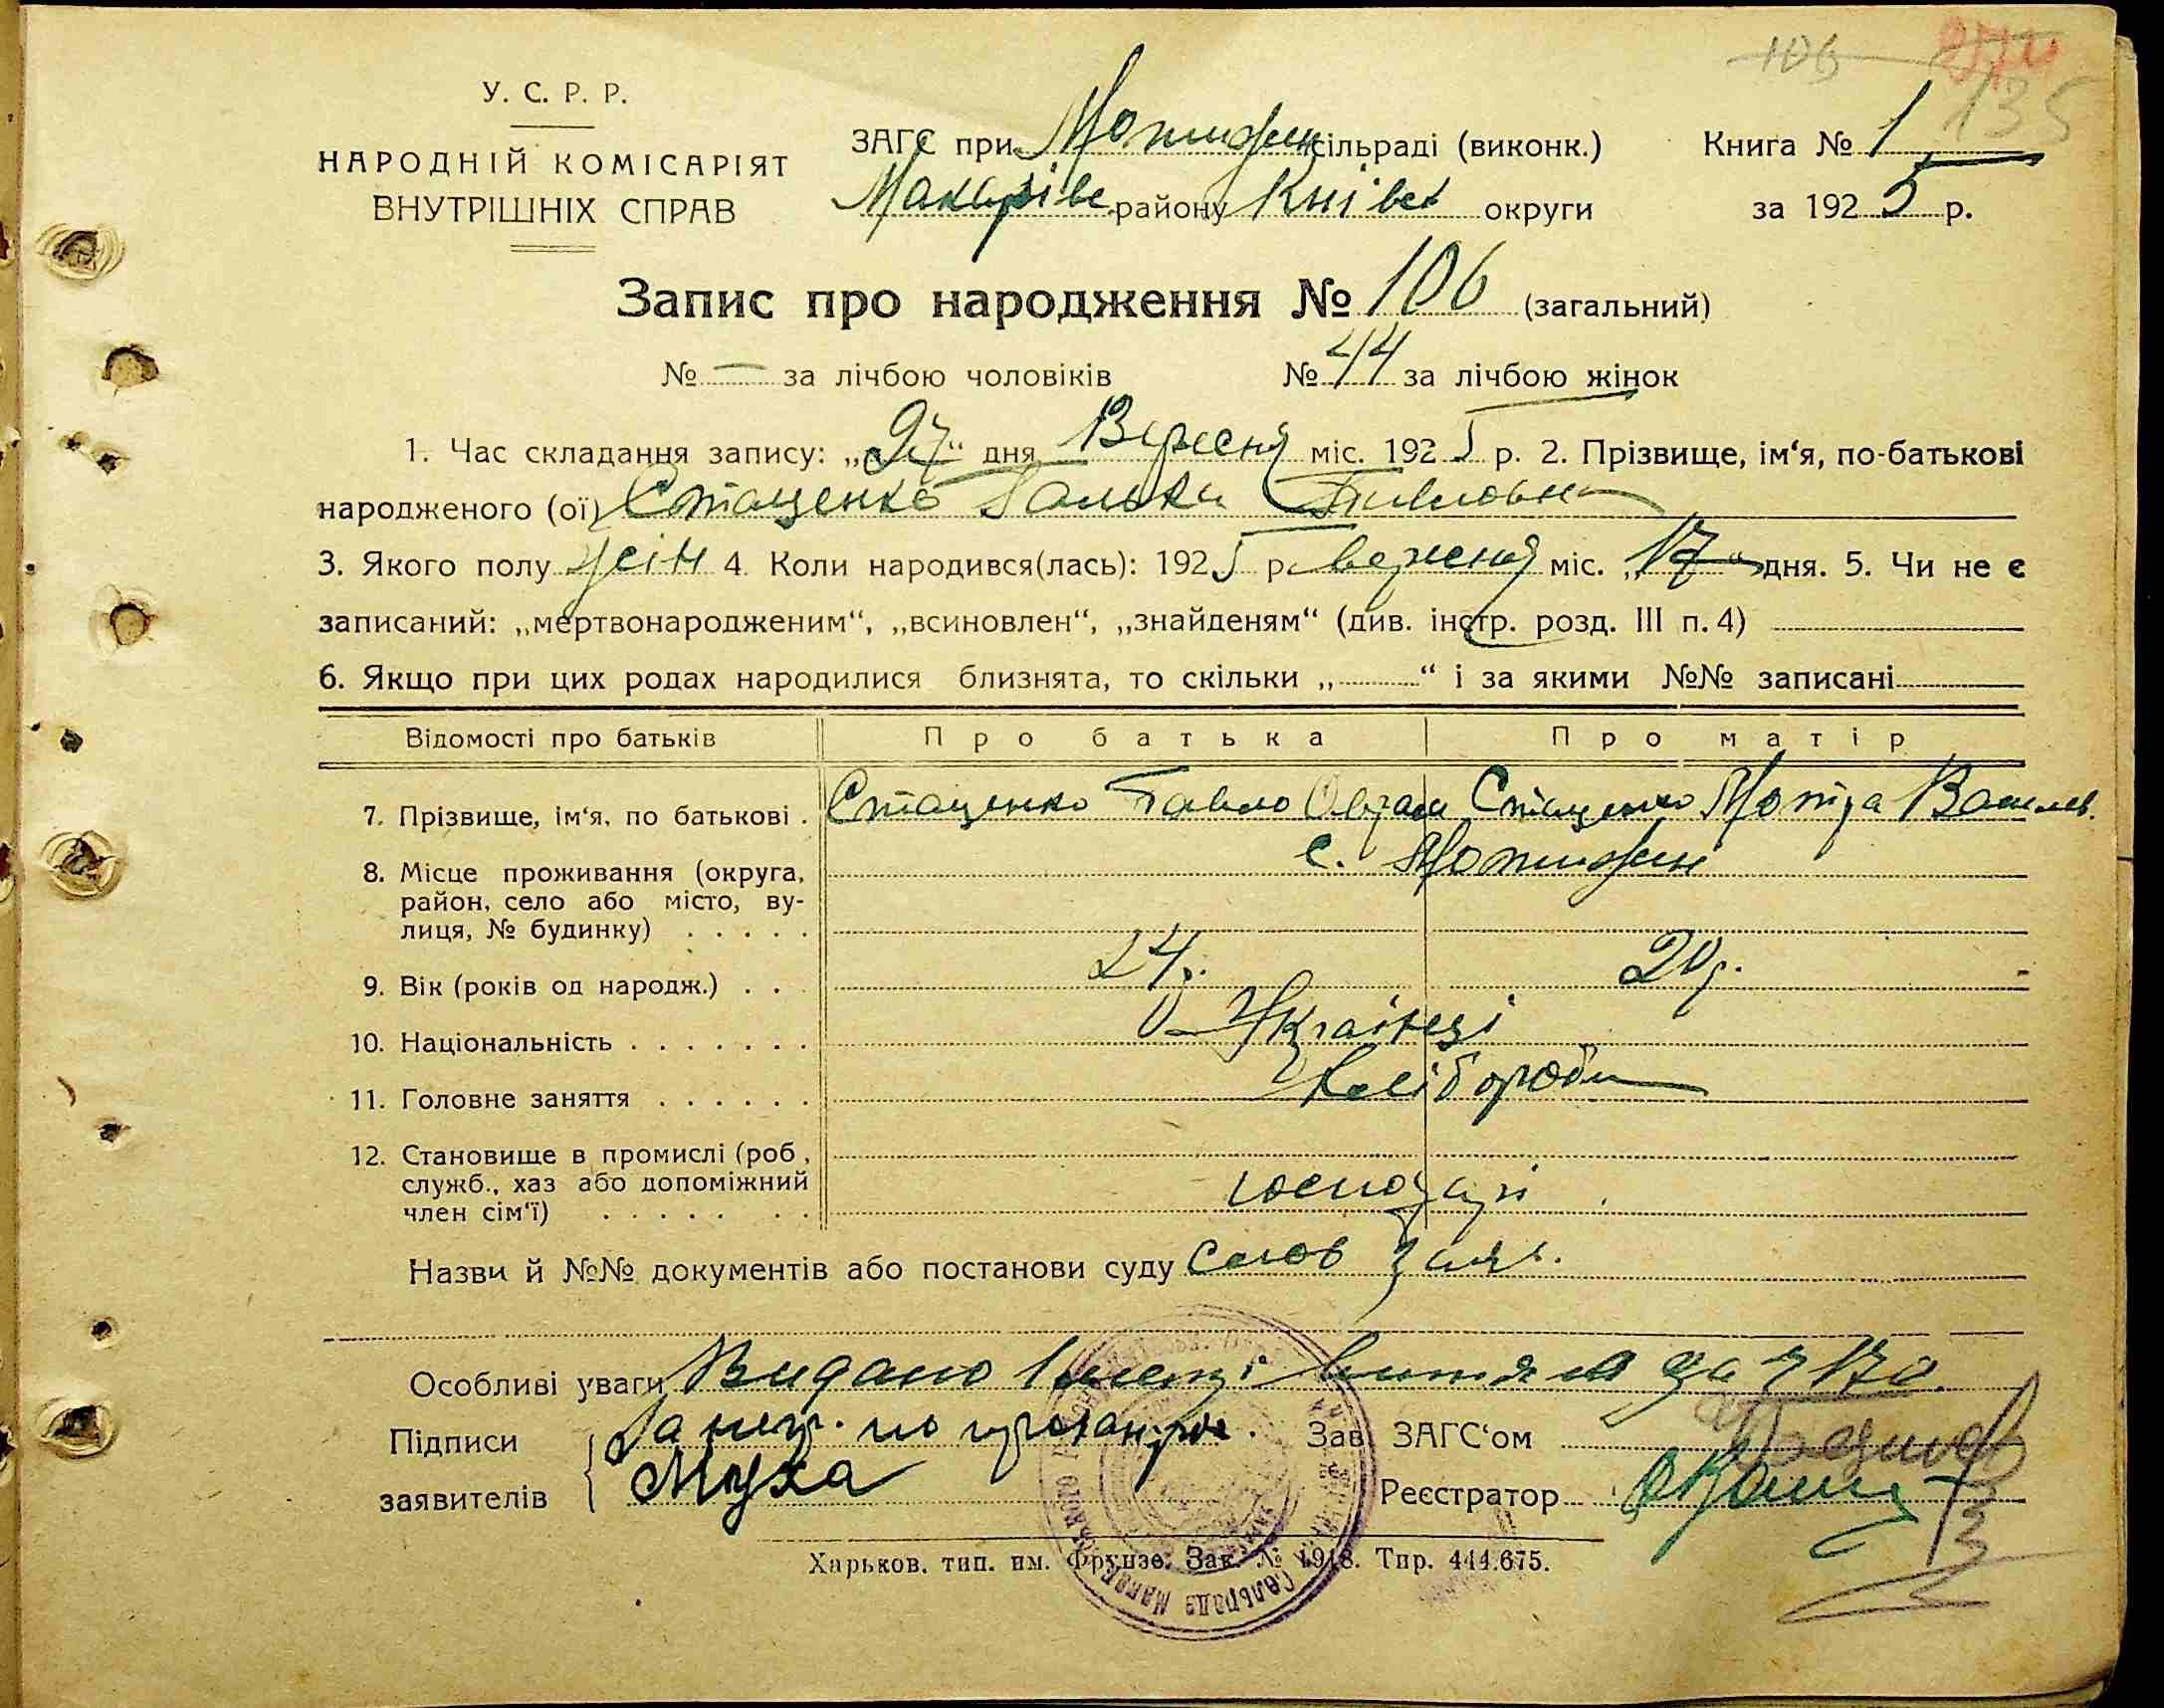 106
135
У. С. Р. Р.
НАРОДНІЙ КОМІСАРІЯТ
ВНУТРІШНІХ СПРАВ
ЗАГС при Мотижин сільраді (виконк.)
Макарівс району Київск округи
Книга № 1
за 1925 р.
Запис про народження № 106 (загальний)
№ — за лічбою чоловіків № 44 за лічбою жінок
1. Час складання запису: „27“ дня Вересня міс. 1925 р. 2. Прізвище, ім‘я, по-батькові
народженого (ої) Стаценко Галька Павловна
3. Якого полу жін 4. Коли народився(лась): 1925 р. вересня міс. „17“ дня. 5. Чи не є
записаний: „мертвонародженим“, „всиновлен“, „знайденям“ (див. інстр. розд. III п. 4)
6. Якщо при цих родах народилися близнята, то скільки „ “ і за якими №№ записані
Відомості про батьків Про батька Про матір
7. Прізвище, ім‘я, по батькові . Стаценко Павло Оврам Стаценко Мотря Василев.
8. Місце проживання (округа, с. Мотижин
район, село або місто, ву-
лиця, № будинку) . . . . .
9. Вік (років од народж.) . . 24 р. 20 р.
10. Національність . . . . . . . Українці
11. Головне заняття . . . . . . Хлібороби
12. Становище в промислі (роб.,
служб., хаз або допоміжний господарі
член сім‘ї) . . . . . . .
Назви й №№ документів або постанови суду Слов заяв.
Особливі уваги Видано витяг за № 170
Підписи За неп. по
заявителів Муха
Зав. ЗАГС‘ом
Реєстратор
Харьков. тип. им. Фрунзе. Зак. № 1918. Тир. 444.675.